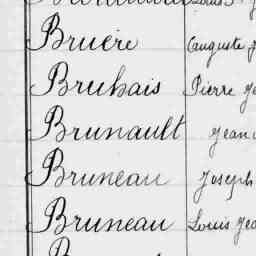 Bruère Auguste
Bruhais Pierre
Brunault Jean
Bruneau Joseph
Bruneau Louis